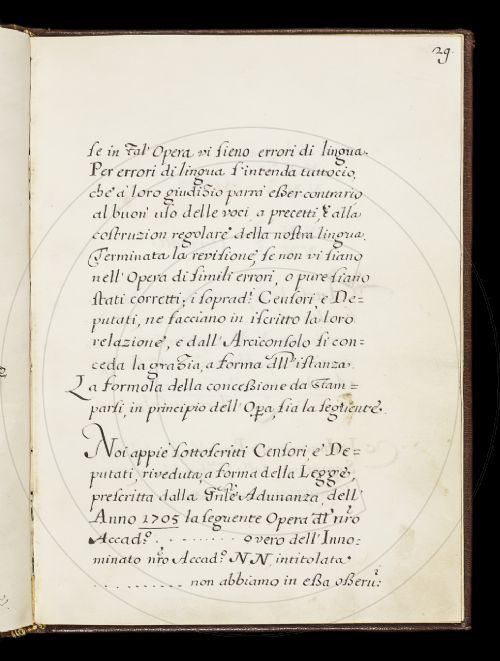 29.
se in tal' Opera vi sieno errori di lingua.
Per errori di lingua s'intenda tuttociò,
che à loro giudizio parrà esser contrario
al buon' uso delle voci, a precetti, e alla
costruzion regolare della nostra lingua.
Terminata la revisione, se non vi siano
nell' Opera di simili errori, o pure siano
stati corretti; i soprad.i Censori, e De=
putati, ne facciano in iscritto la loro
relazione, e dall' Arciconsolo si con=
ceda la grazia, a forma dell' istanza.
La formola della concessione da stam=
parsi, in principio dell' Opa, sia la seguente.
Noi appiè sottoscritti Censori, e De=
putati, riveduta, a forma della Legge,
prescritta dalla Gnle Adunanza dell'
Anno 1705 la seguente Opera del nro
Accad.o . . . . . . . . . overo dell' Inno=
minato nro Accad.o NN, intitolata
. . . . . . . . . . non abbiamo in essa osseru: